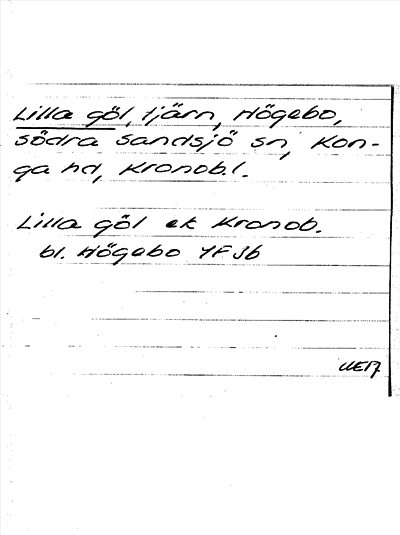 Lilla göl, tjärn, Högebo,
södra Sandsjö sn, Kon-
ga hd, Kronob.l.
Lilla göl ek Kronob.
bl. Högebo 4F3b